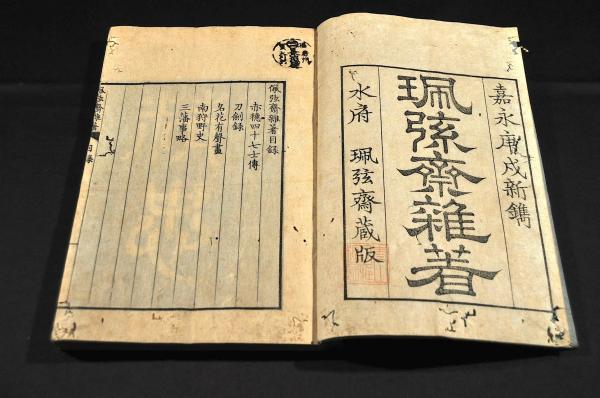 嘉永庚戌新鐫
珮弦齋雜著
水府 珮弦齋蔵版
佩弦齋雜著目録
赤穗四十七士傳
刀劍録
名花有聲畫
南狩野史
三藩事略
佩弦齋雜著 目録